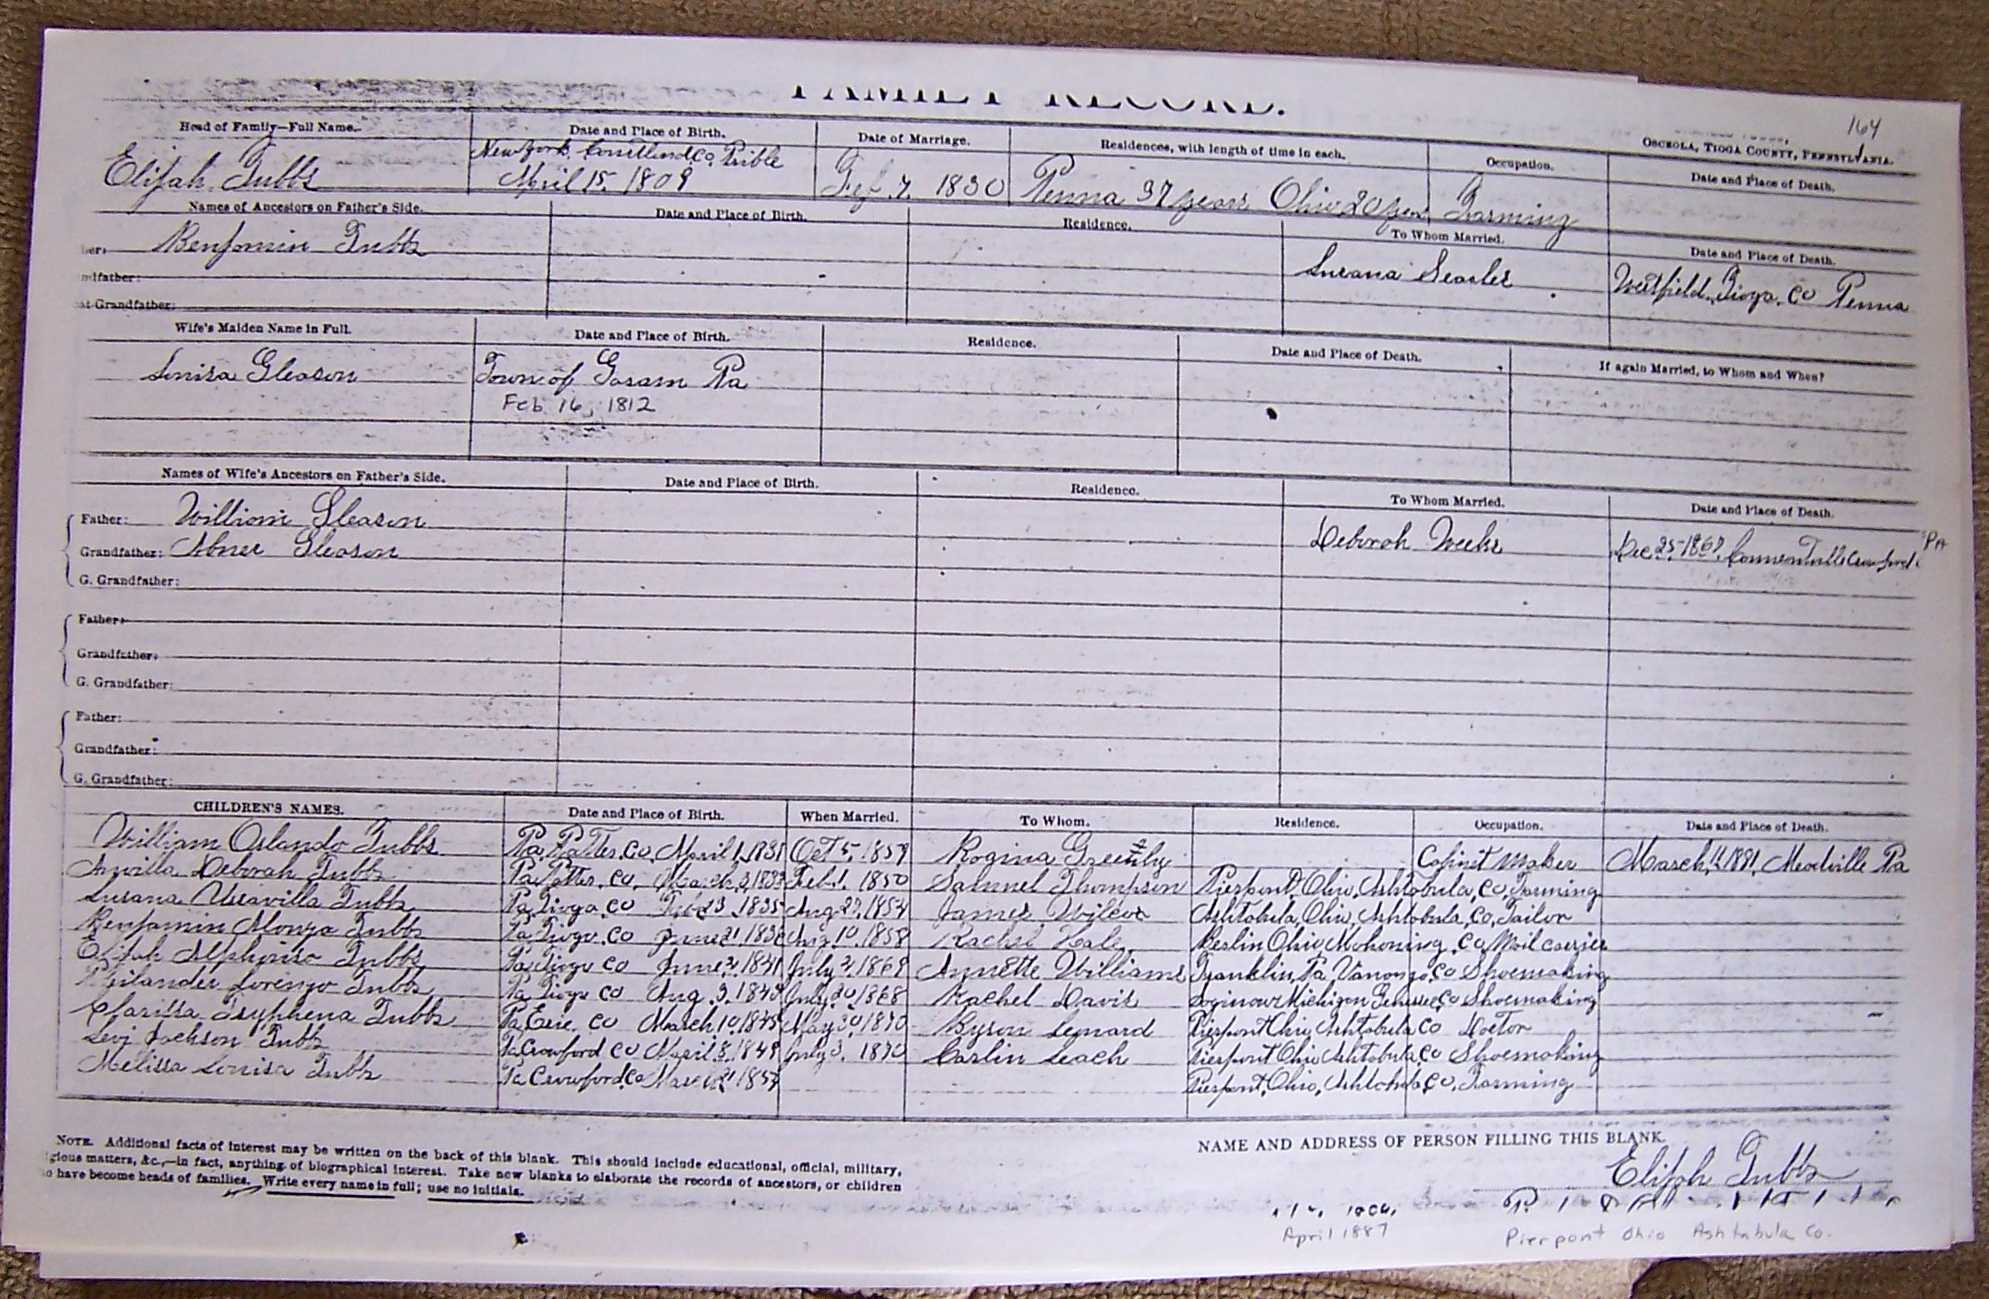 FAMILY RECORD.
164
OSCEOLA, TIOGA COUNTY, PENNSYLVANIA.
Head of Family—Full Name. Date and Place of Birth. Date of Marriage. Residences, with length of time in each. Occupation. Date and Place of Death.
New York Co. Preble
Elijah Tubbs April 15, 1809 Feb 7 1830 Penna 37 years Ohio 20 years Farming
Names of Ancestors on Father's Side. Date and Place of Birth. Residence. To Whom Married. Date and Place of Death.
her: Benjamin Tubbs Susana Searles Westfield, Tioga, Co Penna
ndfather:
at-Grandfather:
Wife's Maiden Name in Full. Date and Place of Birth. Residence. Date and Place of Death. If again Married, to Whom and When?
Louisa Gleason Town of Pa
Feb 16, 1812
Names of Wife's Ancestors on Father's Side. Date and Place of Birth. Residence. To Whom Married. Date and Place of Death.
Father: William Gleason Deborah Weeks Dec 25 Pa
Grandfather: Abner Gleason
G. Grandfather:
Father:
Grandfather:
G. Grandfather:
Father:
Grandfather:
G. Grandfather:
CHILDREN'S NAMES. Date and Place of Birth. When Married. To Whom. Residence. Occupation. Date and Place of Death.
William Orlando Tubbs Pa. Potter, Co, April 1, 1831 Oct 5, 1859 Rogina Cabinet Maker March, 1881, Meadville Pa
Deborah Tubbs Pa Potter, Co, March 3, 1833 Feb 1, 1850 Samuel Thompson Pierpont, Ohio, Ashtabula, Co, Farming
Susana Tubbs Pa Tioga, Co 1835 Aug 27, 1854 James Wilcox Ashtabula, Ohio, Ashtabula, Co, Tailor
Benjamin Alonzo Tubbs Pa Tioga Co June 21, Aug 10, 1858 Rachel Hale, Berlin Ohio Mahoning, Co, Mail carrier
Elijah Alphonso Tubbs Pa Tioga Co June 1841 July 2, 1869 Annette Williams Franklin, Pa, Co Shoemaking
Philander Lorenzo Tubbs Pa Tioga Co Aug, 3, 1843 July 30, 1868 Rachel Davis Michigan Co Shoemaking
Clarissa Tryphena Tubbs Pa Erie, Co March 10, May 30, 1870 Byron Leonard Pierpont Ohio, Ashtabula Co Doctor
Levi Jackson Tubbs Pa Crawford Co April 8, 1849 July 3, 1870 Carlin Leach Pierpont Ohio Ashtabula Co Shoemaking
Melissa Louisa Tubbs Pa Crawford, Co Pierpont, Ohio, Ashtabula, Co, Farming
NOTE. Additional facts of interest may be written on the back of this blank. This should include educational, official, military,
igious matters, &c.,—in fact, anything of biographical interest. Take new blanks to elaborate the records of ancestors, or children
o have become heads of families. Write every name in full; use no initials.
NAME AND ADDRESS OF PERSON FILLING THIS BLANK.
Elijah Tubbs
April 1887 Pierpont Ohio Ashtabula Co.